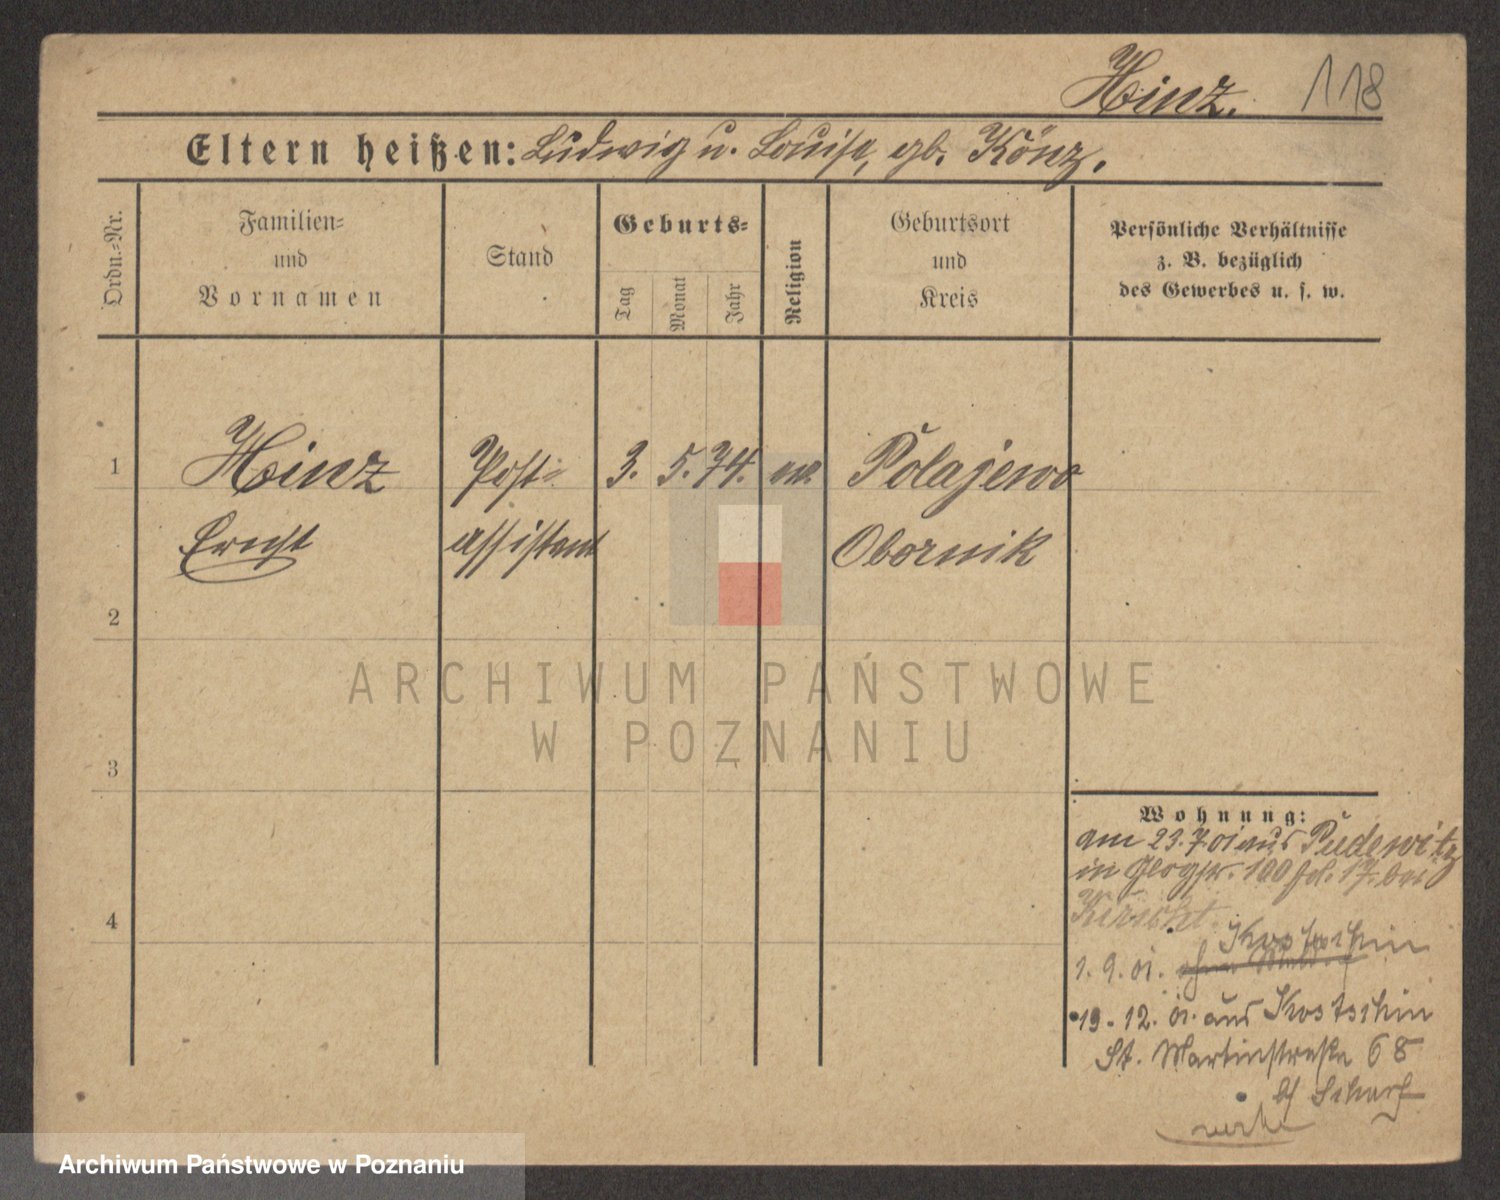 Hinz. 118
Eltern heißen: Ludwig u. Louise, gb. Könz.
Ordn.-Nr.
Familien-
und
Vornamen
Stand
Geburts-
Tag
Monat
Jahr
Religion
Geburtsort
und
Kreis
Persönliche Verhältnisse
z. B. bezüglich
des Gewerbes u. s. w.
1 Hinz Post- 3. 5. 74. Polajewo
Ernst assistent Obornik
2
3
4
ARCHIWUM PAŃSTWOWE
W POZNANIU
Wohnung:
am 23.7.01 aus Pudewitz
in 100 17. bei
1. 9. 01. Kostschin
19. 12. 01. aus Kostschin
St. Martinstraße 68
b/ Scharf
Archiwum Państwowe w Poznaniu